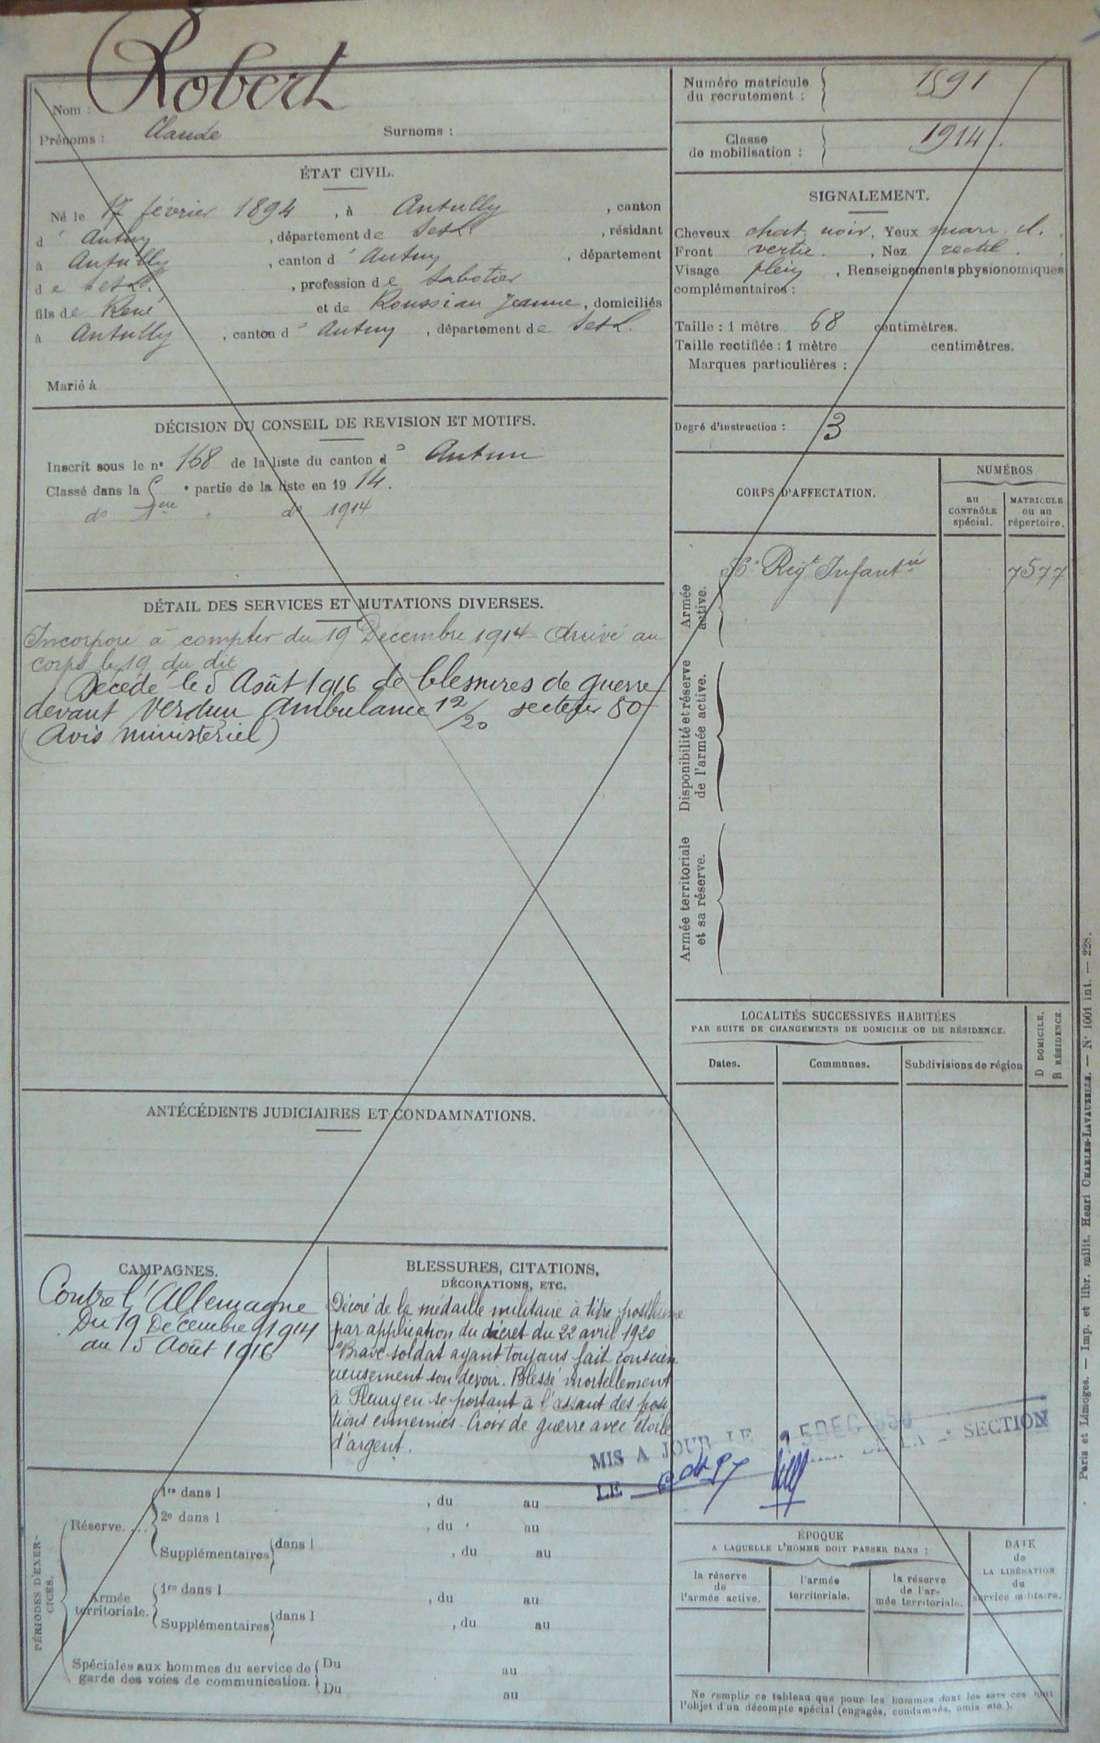 Nom : Robert
Prénoms : Claude Surnoms :
Numéro matricule du recrutement : 1591
Classe de mobilisation : 1914
ÉTAT CIVIL.
Né le 17 février 1894, à Antully, canton
d' Autun, département de S et L, résidant
à Antully, canton d' Autun, département
de S et L, profession de Sabotier
fils de René et de Roussiau Jeanne, domiciliés
à Antully, canton d' Autun, département de S et L.
Marié à
SIGNALEMENT.
Cheveux chat. noir, Yeux marr. cl.
Front vertic., Nez rectil.
Visage plein, Renseignements physionomiques
complémentaires :
Taille : 1 mètre 68 centimètres.
Taille rectifiée : 1 mètre centimètres.
Marques particulières :
Degré d'instruction : 3
DÉCISION DU CONSEIL DE REVISION ET MOTIFS.
Inscrit sous le nº 168 de la liste du canton d' Autun
Classé dans la partie de la liste en 1914.
do do 1914
CORPS D'AFFECTATION.
NUMÉROS
au CONTRÔLE spécial.
MATRICULE ou au répertoire.
Armée active.
56e Régt Infantie 7577
Disponibilité et réserve de l'armée active.
Armée territoriale et sa réserve.
DÉTAIL DES SERVICES ET MUTATIONS DIVERSES.
Incorporé à compter du 19 Décembre 1914 Arrivé au
corps le 19 du dit
Décédé le 5 Août 1916 de blessures de guerre
devant Verdun ambulance 12/20 secteur 50
(Avis ministériel)
LOCALITÉS SUCCESSIVES HABITÉES
PAR SUITE DE CHANGEMENTS DE DOMICILE OU DE RÉSIDENCE.
Dates. Communes. Subdivisions de région
D DOMICILE.
R RÉSIDENCE.
ANTÉCÉDENTS JUDICIAIRES ET CONDAMNATIONS.
CAMPAGNES.
Contre l'Allemagne
Du 19 Décembre 1914
au 5 Août 1916
BLESSURES, CITATIONS,
DÉCORATIONS, ETC.
Décoré de la médaille militaire à titre posthume
par application du décret du 22 avril 1920
"Brave soldat ayant toujours fait conscien
cieusement son devoir. Blessé mortellement
à Fleury en se portant à l'assaut des posi
tions ennemies. Croix de guerre avec étoile
d'argent.
MIS A JOUR LE
DE LA SECTION
LE
PÉRIODES D'EXERCICES.
Réserve....
1re dans l , du au
2e dans l , du au
Supplémentaires dans l , du au
Armée territoriale.
1re dans l , du au
Supplémentaires dans l , du au
Spéciales aux hommes du service de
garde des voies de communication.
Du au
Du au
ÉPOQUE
A LAQUELLE L'HOMME DOIT PASSER DANS :
la réserve de l'armée active.
l'armée territoriale.
la réserve de l'armée territoriale.
DATE de LA LIBÉRATION du service militaire.
Ne remplir ce tableau que pour les hommes dont les services font
l'objet d'un décompte spécial (engagés, condamnés, omis etc.).
Paris et Limoges. — Imp. et libr. milit. Henri CHARLES-LAVAUZELLE. — Nº 1001 int. — 228.